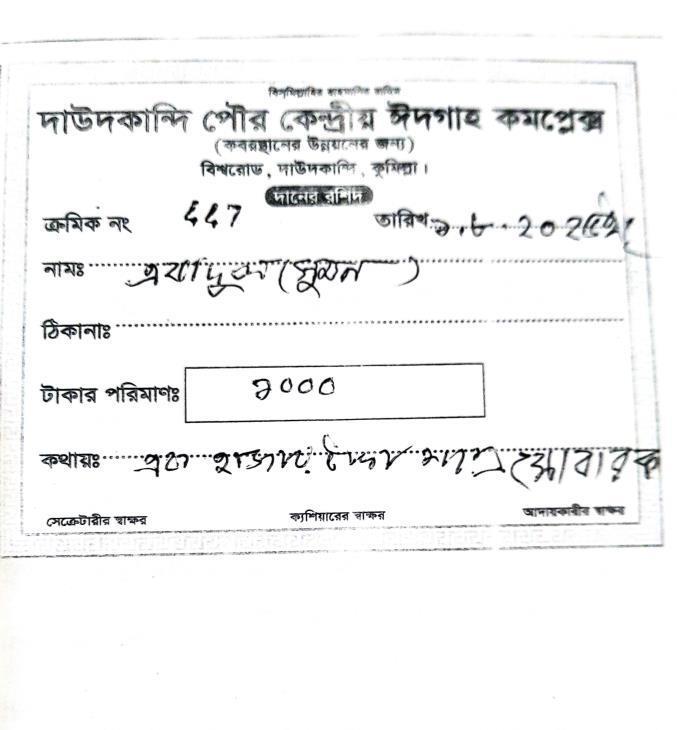 বিসমিল্লাহির রাহমানির রাহিম
দাউদকান্দি পৌর কেন্দ্রীয় ঈদগাহ কমপ্লেক্স
(কবরস্থানের উন্নয়নের জন্য)
বিশ্বরোড, দাউদকান্দি, কুমিল্লা।
দানের রশিদ
ক্রমিক নং তারিখ
নামঃ (সুমন)
ঠিকানাঃ
টাকার পরিমাণঃ ১০০০
কথায়ঃ এক হাজার টাকা মাত্র মোবারক
সেক্রেটারীর স্বাক্ষর ক্যাশিয়ারের স্বাক্ষর আদায়কারীর স্বাক্ষর